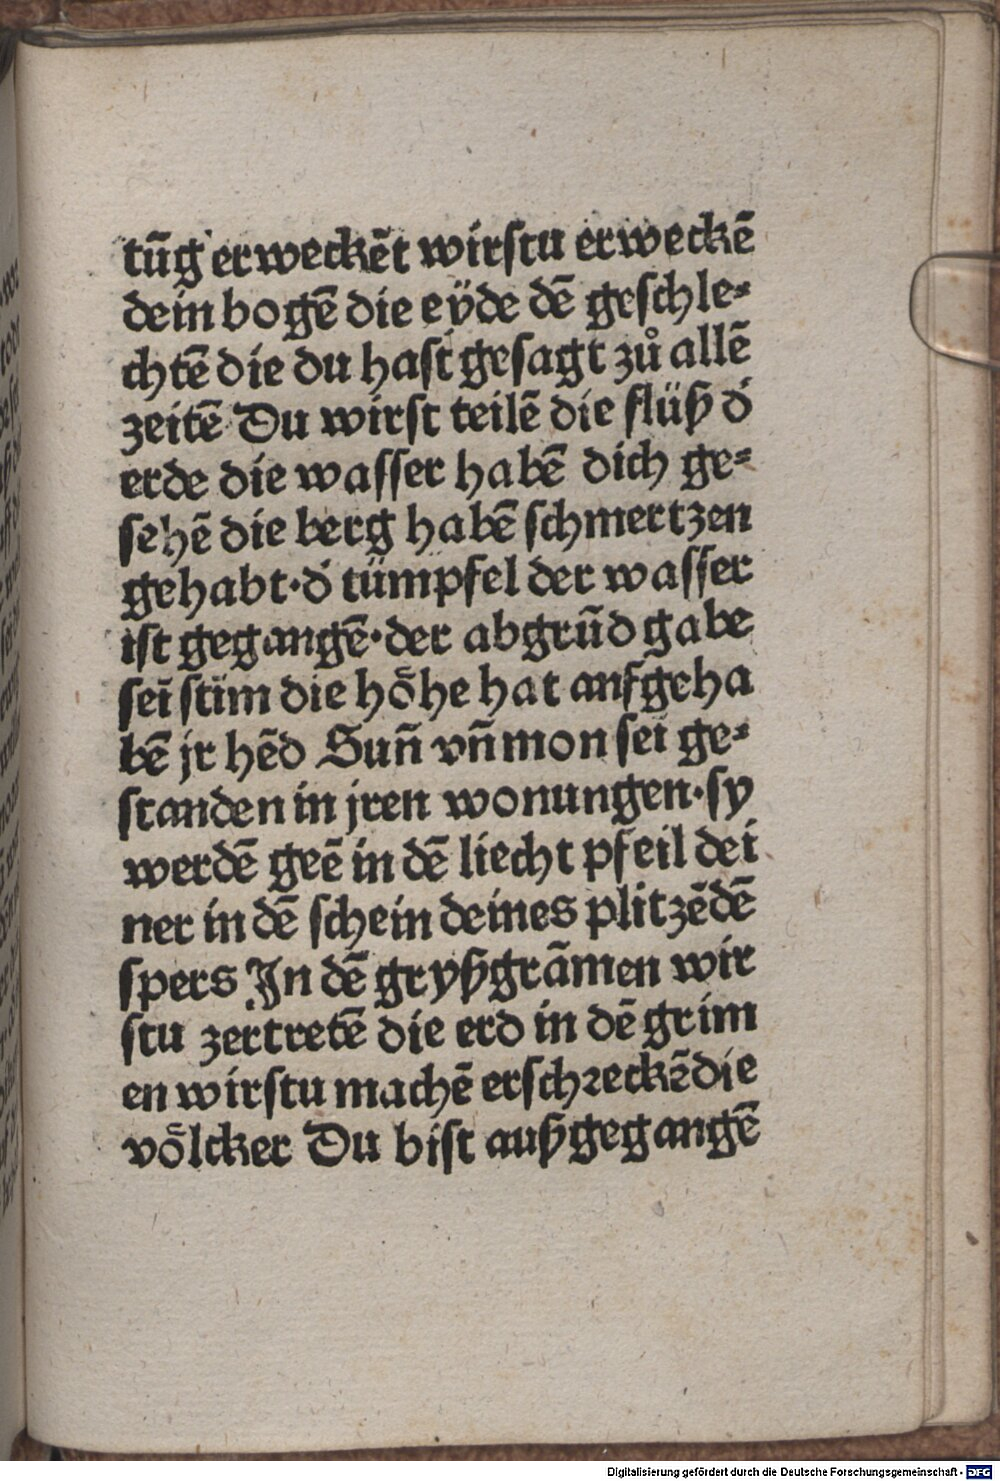 tũg erweckẽt wirstu erweckẽ
dein bogẽ die eÿde dẽ geschle⸗
chtẽ die du hast gesagt zů allẽ
zeitẽ Du wirst teilẽ die flüß d'
erde die wasser habẽ dich ge⸗
sehẽ die berg habẽ schmertzen
gehabt·d' tümpfel der wasser
ist gegangẽ·der abgrũd gabe
sei stim die höhe hat anfgeha
bẽ jr hẽd Suñ vñ mon sei ge⸗
standen in jren wonungen·sy
werdẽ geẽ in dẽ liecht pfeil dei
ner in dẽ schein deines plitzẽdẽ
spers Jn dẽ gryßgrãmen wir
stu zertretẽ die erd in dẽ grim
en wirstu machẽ erschreckẽ die
völcker Du bist außgegangẽ
Digitalisierung gefördert durch die Deutsche Forschungsgemeinschaft - DFG